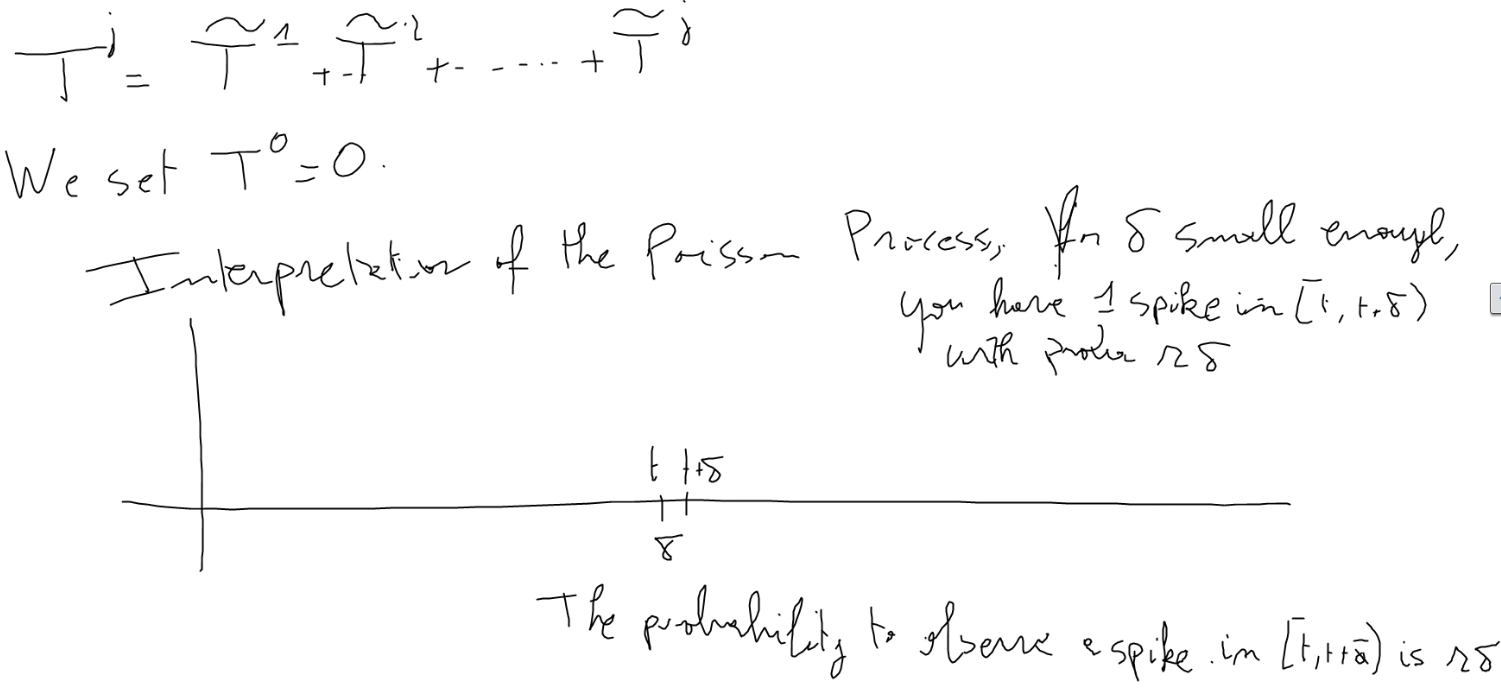 T^j = T̃^1 + T̃^2 + - - ... + T̃^j
We set T^0 = 0.
Interpretation of the Poisson Process, For δ small enough,
you have 1 spike in [t, t+δ)
with proba rδ
t t+δ
δ
The probability to observe a spike in [t, t+δ) is rδ